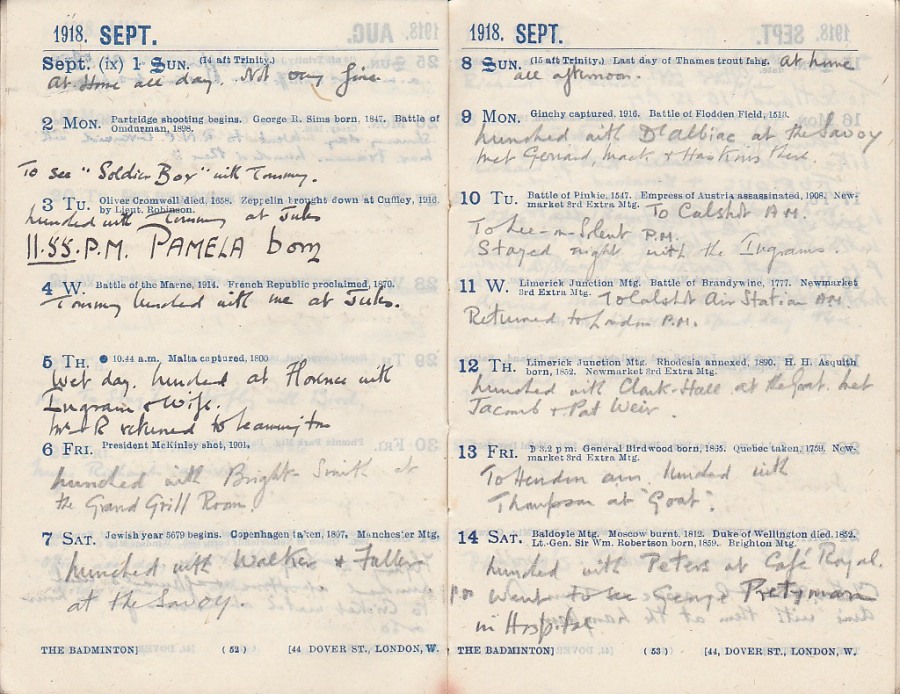 1918. SEPT.
Sept. (ix) 1 SUN. (14 aft Trinity.)
At Home all day. Not very fine
2 MON. Partridge shooting begins. George R. Sims born, 1847. Battle of
Omdurman, 1898.
To see "Soldier Boy" with Tommy.
3 TU. Oliver Cromwell died, 1658. Zeppelin brought down at Cuffley, 1916,
by Lieut. Robinson.
Lunched with Tommy at Jules
11.55. P.M. PAMELA born
4 W. Battle of the Marne, 1914. French Republic proclaimed, 1870.
Tommy lunched with me at Jules.
5 TH. ● 10.44 a.m. Malta captured, 1800
Wet day. Lunched at Florence with
Ingram & Wife.
Mrs R returned to Leamington
6 FRI. President McKinley shot, 1901.
Lunched with Bright-Smith at
the Grand Grill Room.
7 SAT. Jewish year 5679 begins. Copenhagen taken, 1807. Manchester Mtg.
Lunched with Walker & Fuller
at the Savoy.
THE BADMINTON] (52) [44 DOVER ST., LONDON, W.
1918. SEPT.
8 SUN. (15 aft Trinity.) Last day of Thames trout fshg. at home
all afternoon.
9 MON. Ginchy captured, 1916. Battle of Flodden Field, 1513.
Lunched with D'albiac at the Savoy
met Gerrard, Mack & Haskins there.
10 TU. Battle of Pinkie, 1547. Empress of Austria assassinated, 1908. New-
market 3rd Extra Mtg. To Calshot A.M.
To Lee-on-Solent P.M.
Stayed night with the Ingrams.
11 W. Limerick Junction Mtg. Battle of Brandywine, 1777. Newmarket
3rd Extra Mtg. To Calshot Air Station AM
Returned to London P.M.
12 TH. Limerick Junction Mtg. Rhodesia annexed, 1890. H. H. Asquith
born, 1852. Newmarket 3rd Extra Mtg.
Lunched with Clark-Hall at the Goat. met
Jacomb & Pat Weir.
13 FRI. D 3.2 p.m. General Birdwood born, 1865. Quebec taken, 1759. New-
market 3rd Extra Mtg.
To Hendon am. Lunched with
Thompson at "Goat".
14 SAT. Baldoyle Mtg. Moscow burnt, 1812. Duke of Wellington died, 1852.
Lt.-Gen. Sir Wm. Robertson born, 1859. Brighton Mtg.
Lunched with Peters at Café Royal.
pm Went to see George Pretyman
in Hospital
THE BADMINTON] (53) [44 DOVER ST., LONDON, W.